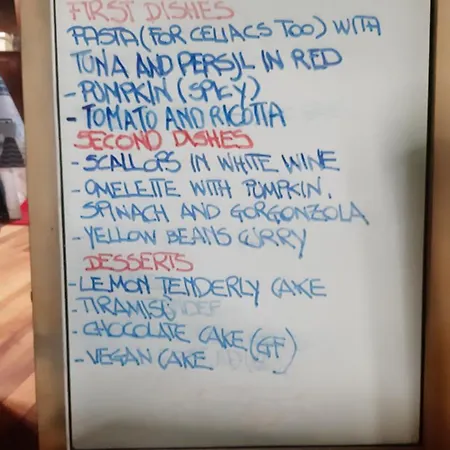 FIRST DISHES
PASTA (FOR CELIACS TOO) WITH
TUNA AND PERSIL IN RED
- PUMPKIN (SPICY)
- TOMATO AND RICOTTA
SECOND DISHES
- SCALLOPS IN WHITE WINE
- OMELETTE WITH PUMPKIN,
SPINACH AND GORGONZOLA
- YELLOW BEANS CURRY
DESSERTS
- LEMON TENDERLY CAKE
- TIRAMISÙ
- CHOCOLATE CAKE (GF)
- VEGAN CAKE